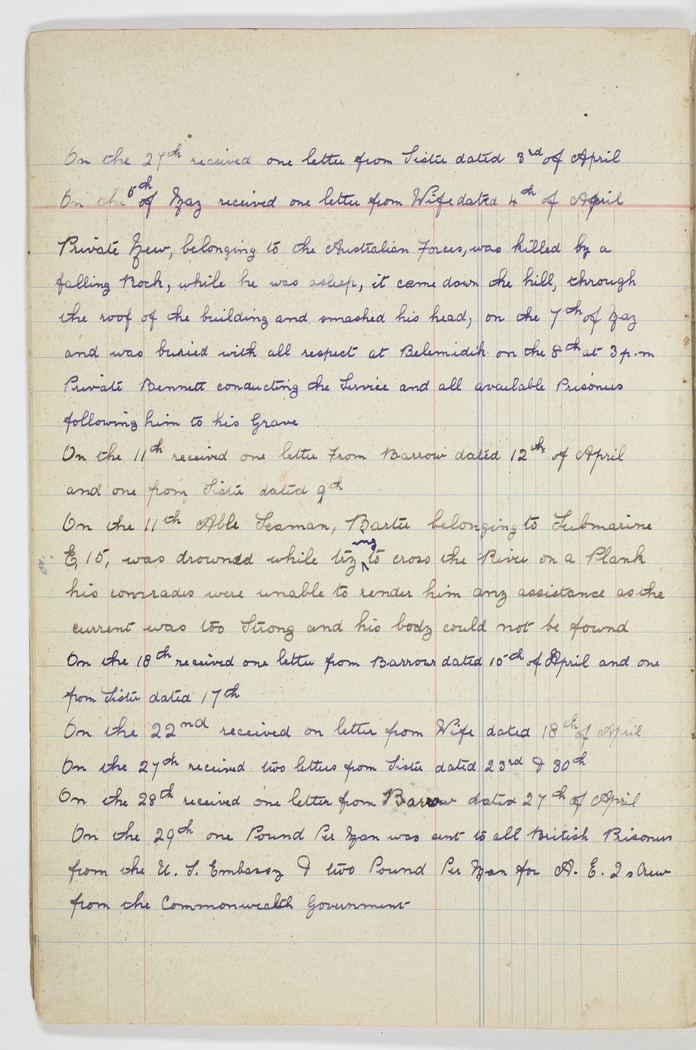 On the 27th received one letter from Sister dated 3rd of April
On the 5th of May received one letter from Wife dated 4th of April
Private , belonging to the Australian Forces, was killed by a
falling Rock, while he was asleep, it came down the hill, through
the roof of the building and smashed his head, on the 7th of May
and was buried with all respect at Belemidik on the 8th at 3 p.m
Private Bennett conducting the Service and all available Prisoners
following him to his Grave
On the 11th received one letter from Barrow dated 12th of April
and one from Sister dated 9th
On the 11th Able Seaman, Barter belonging to Submarine
E, 15, was drowned while trying to cross the River on a Plank
his comrades were unable to render him any assistance as the
current was too Strong and his body could not be found
On the 18th received one letter from Barrow dated 15th of April and one
from Sister dated 17th
On the 22nd received on letter from Wife dated 18th of April
On the 27th received two letters from Sister dated 23rd & 30th
On the 28th received one letter from Barrow dated 27th of April
On the 29th one Pound Per Man was sent to all British Prisoners
from the U. S. Embassy & two Pound Per Man for A. E. 2 s Crew
from the Commonwealth Government